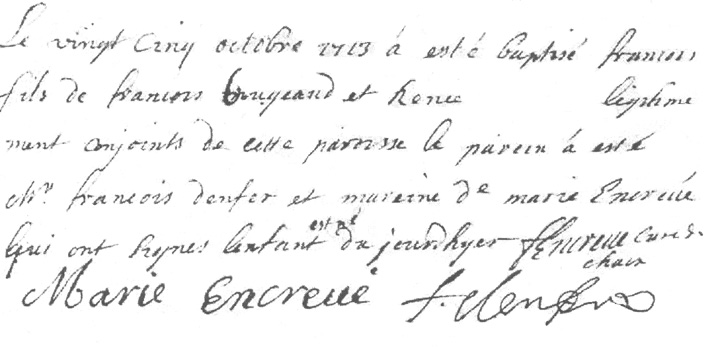 Le vingt cinq octobre 1713 á esté baptisé francois
fils de francois et Renee legitime
ment conjoints de cette paroisse le parein á esté
Mr. francois denfer et mareine de marie Encreué
qui ont signes lenfant est né du jourdhyer fEncreue Curé de
chair
Marie Encreué f. denfer